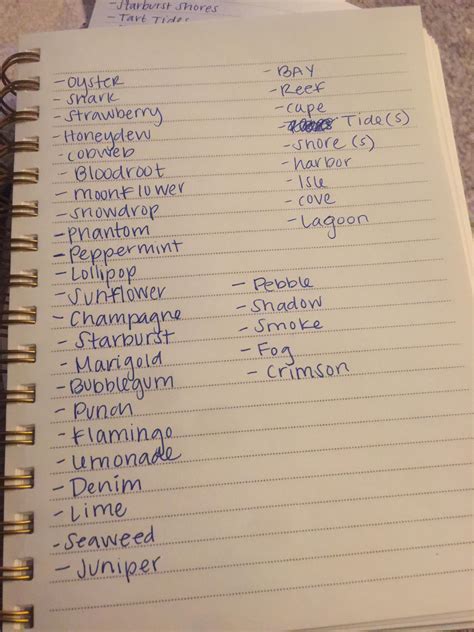 - Starburst shores
- Tart Tides
- Oyster
- shark
- strawberry
- Honeydew
- cobweb
- Bloodroot
- moonflower
- snowdrop
- phantom
- Peppermint
- Lollipop
- Sunflower
- Champagne
- Starburst
- Marigold
- Bubblegum
- Punch
- Flamingo
- Lemonade
- Denim
- Lime
- Seaweed
- Juniper
- BAY
- Reef
- cape
- Tide(s)
- shore (s)
- harbor
- Isle
- cove
- Lagoon
- Pebble
- Shadow
- Smoke
- Fog
- Crimson